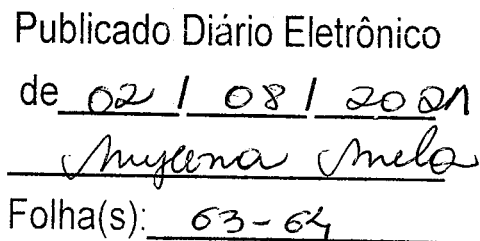 Publicado Diário Eletrônico
de 02 / 08 / 2021
Melo
Folha(s): 63-64